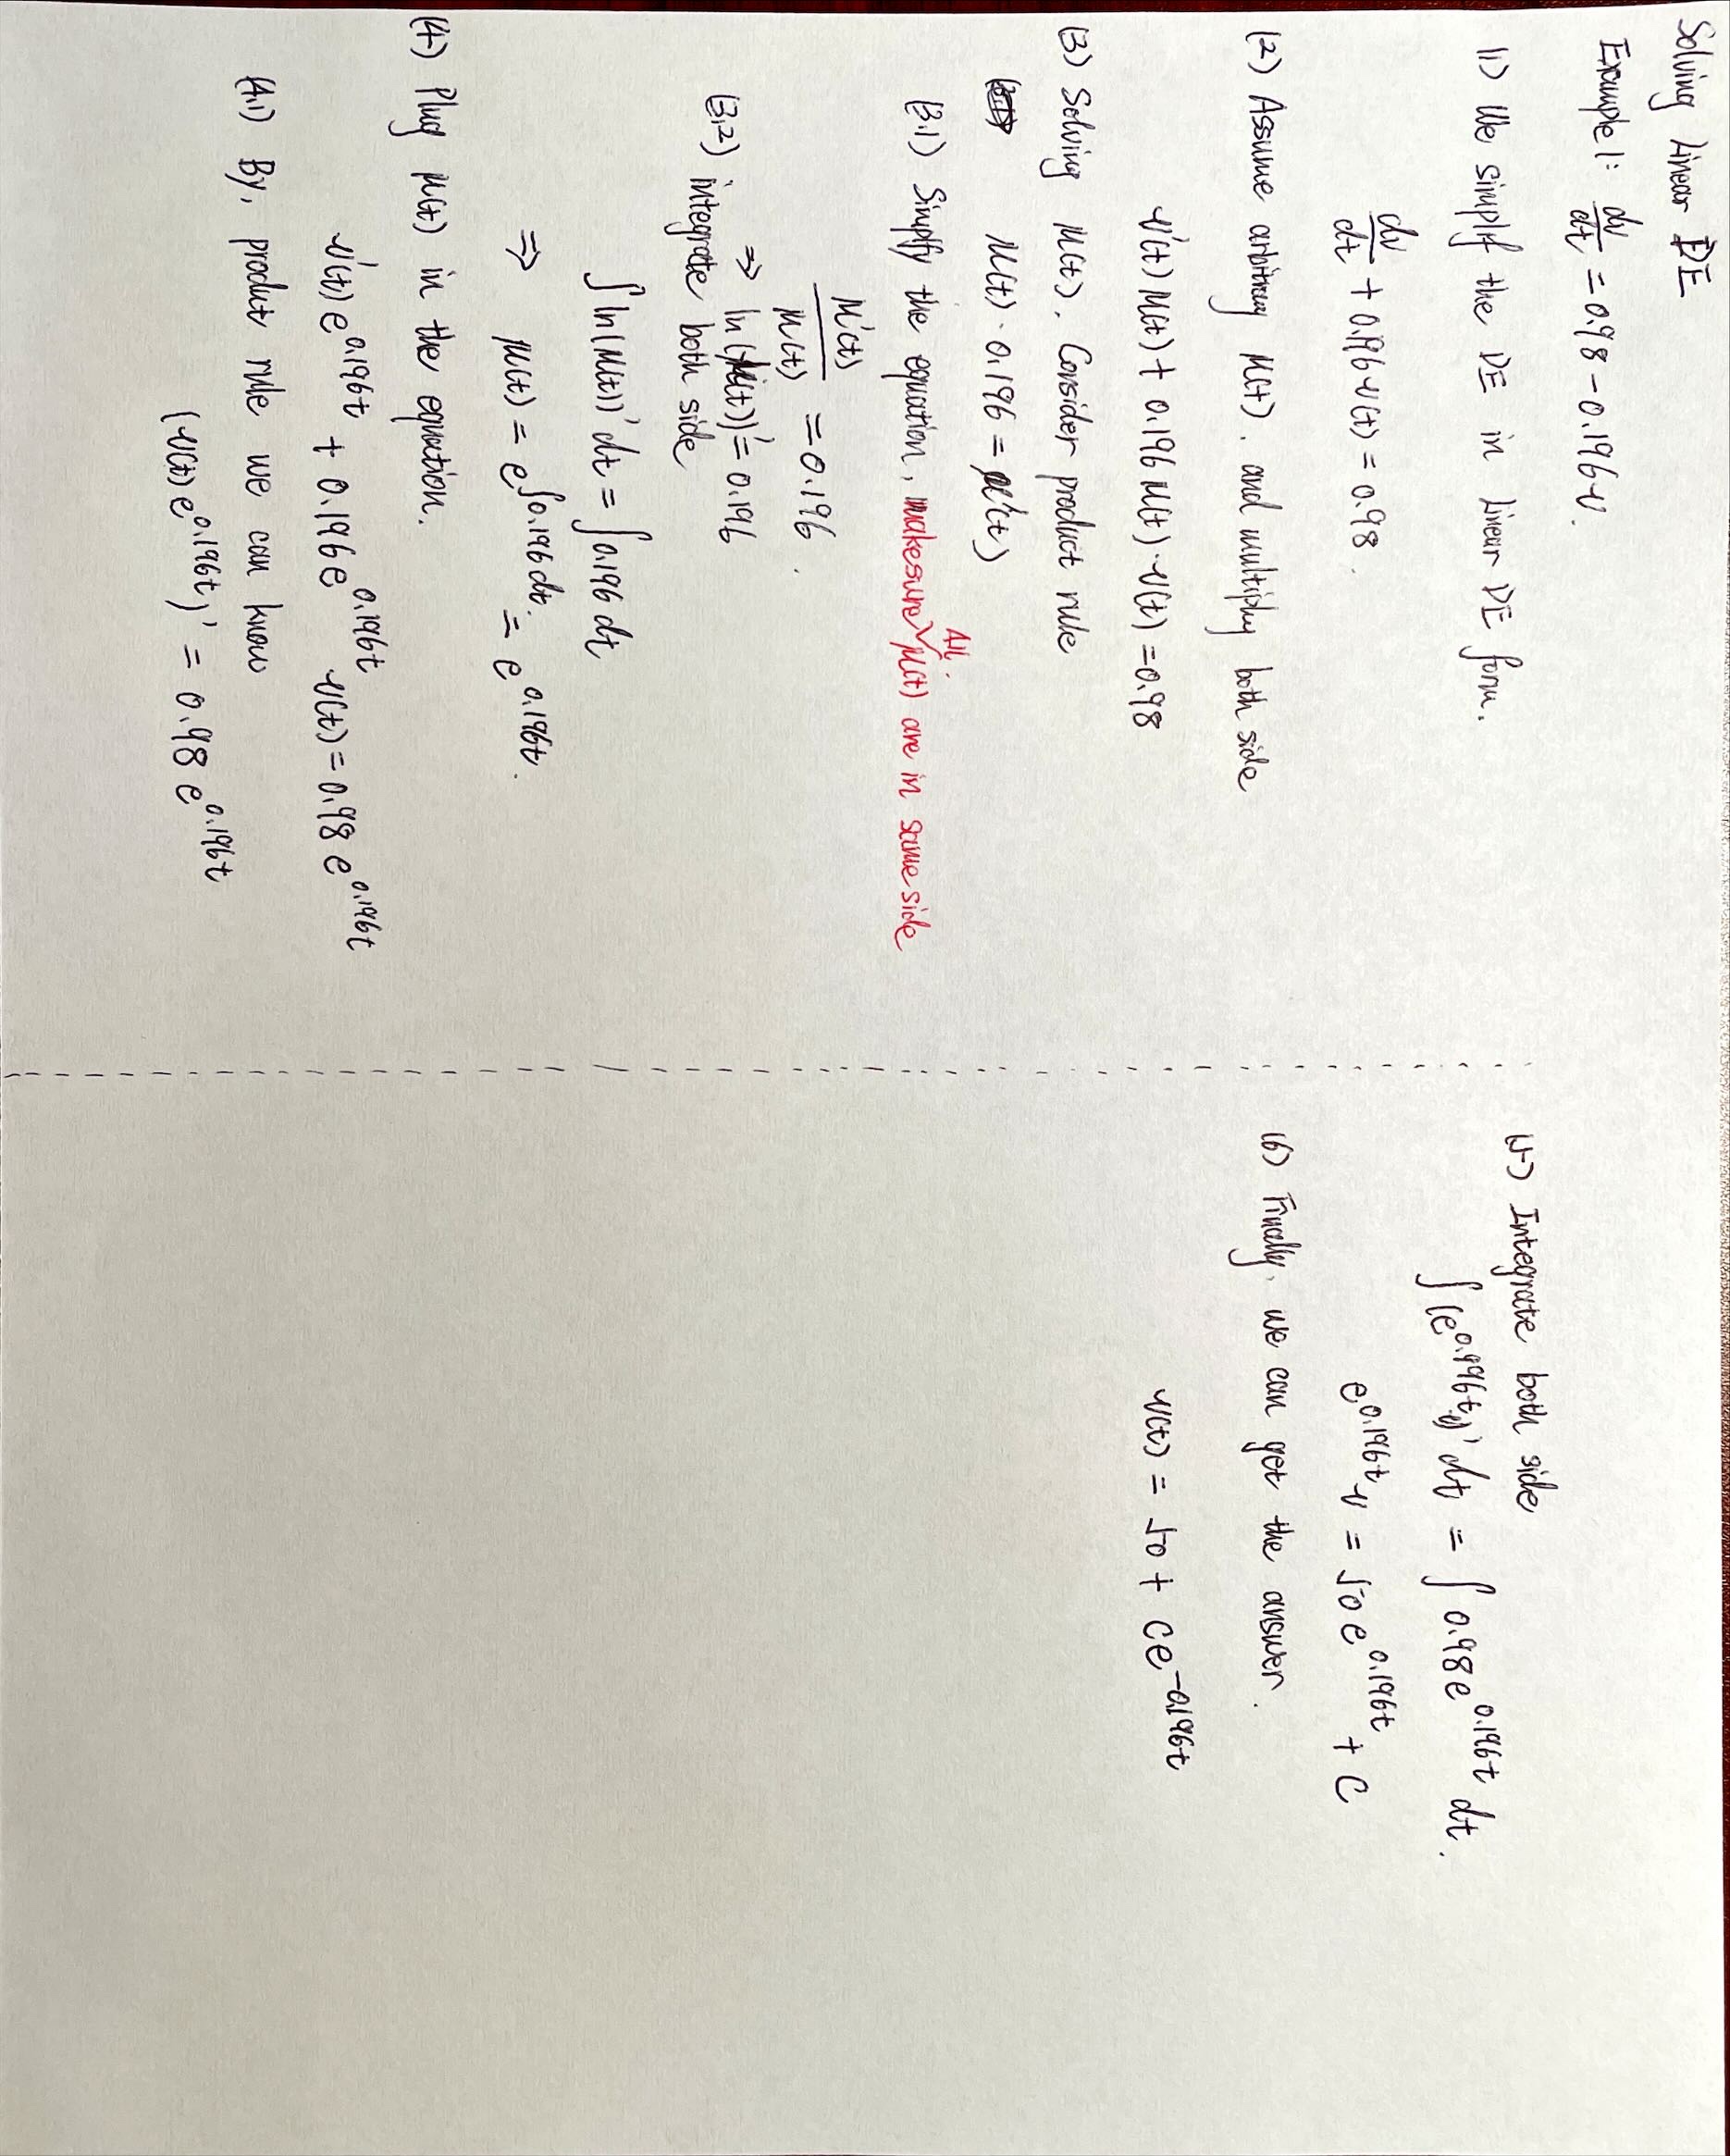 Solving Linear DE
Example 1: dv/dt = 0.98 - 0.196v.
(1) We simplf the DE in Linear DE form.
dv/dt + 0.196 v(t) = 0.98.
(2) Assume arbitrary μ(t). and multiply both side
v'(t) μ(t) + 0.196 μ(t)·v(t) = 0.98
(3) Solving μ(t). Consider product rule
μ(t)·0.196 = μ'(t)
(3.1) Simplfy the equation, makesure All μ(t) are in same side
μ'(t)/μ(t) = 0.196.
⇒ ln(μ(t))' = 0.196
(3.2) integrate both side
∫ ln(μ(t))' dt = ∫ 0.196 dt
⇒ μ(t) = e^∫0.196dt. = e^0.196t.
(4) Plug μ(t) in the equation.
v'(t) e^0.196t + 0.196 e^0.196t v(t) = 0.98 e^0.196t
(4.1) By, product rule we can know
(v(t) e^0.196t)' = 0.98 e^0.196t
(5) Integrate both side
∫ (e^0.196t v)' dt = ∫ 0.98 e^0.196t dt.
e^0.196t v = 50 e^0.196t + C
(6) Finally, we can get the answer.
v(t) = 50 + Ce^-0.196t